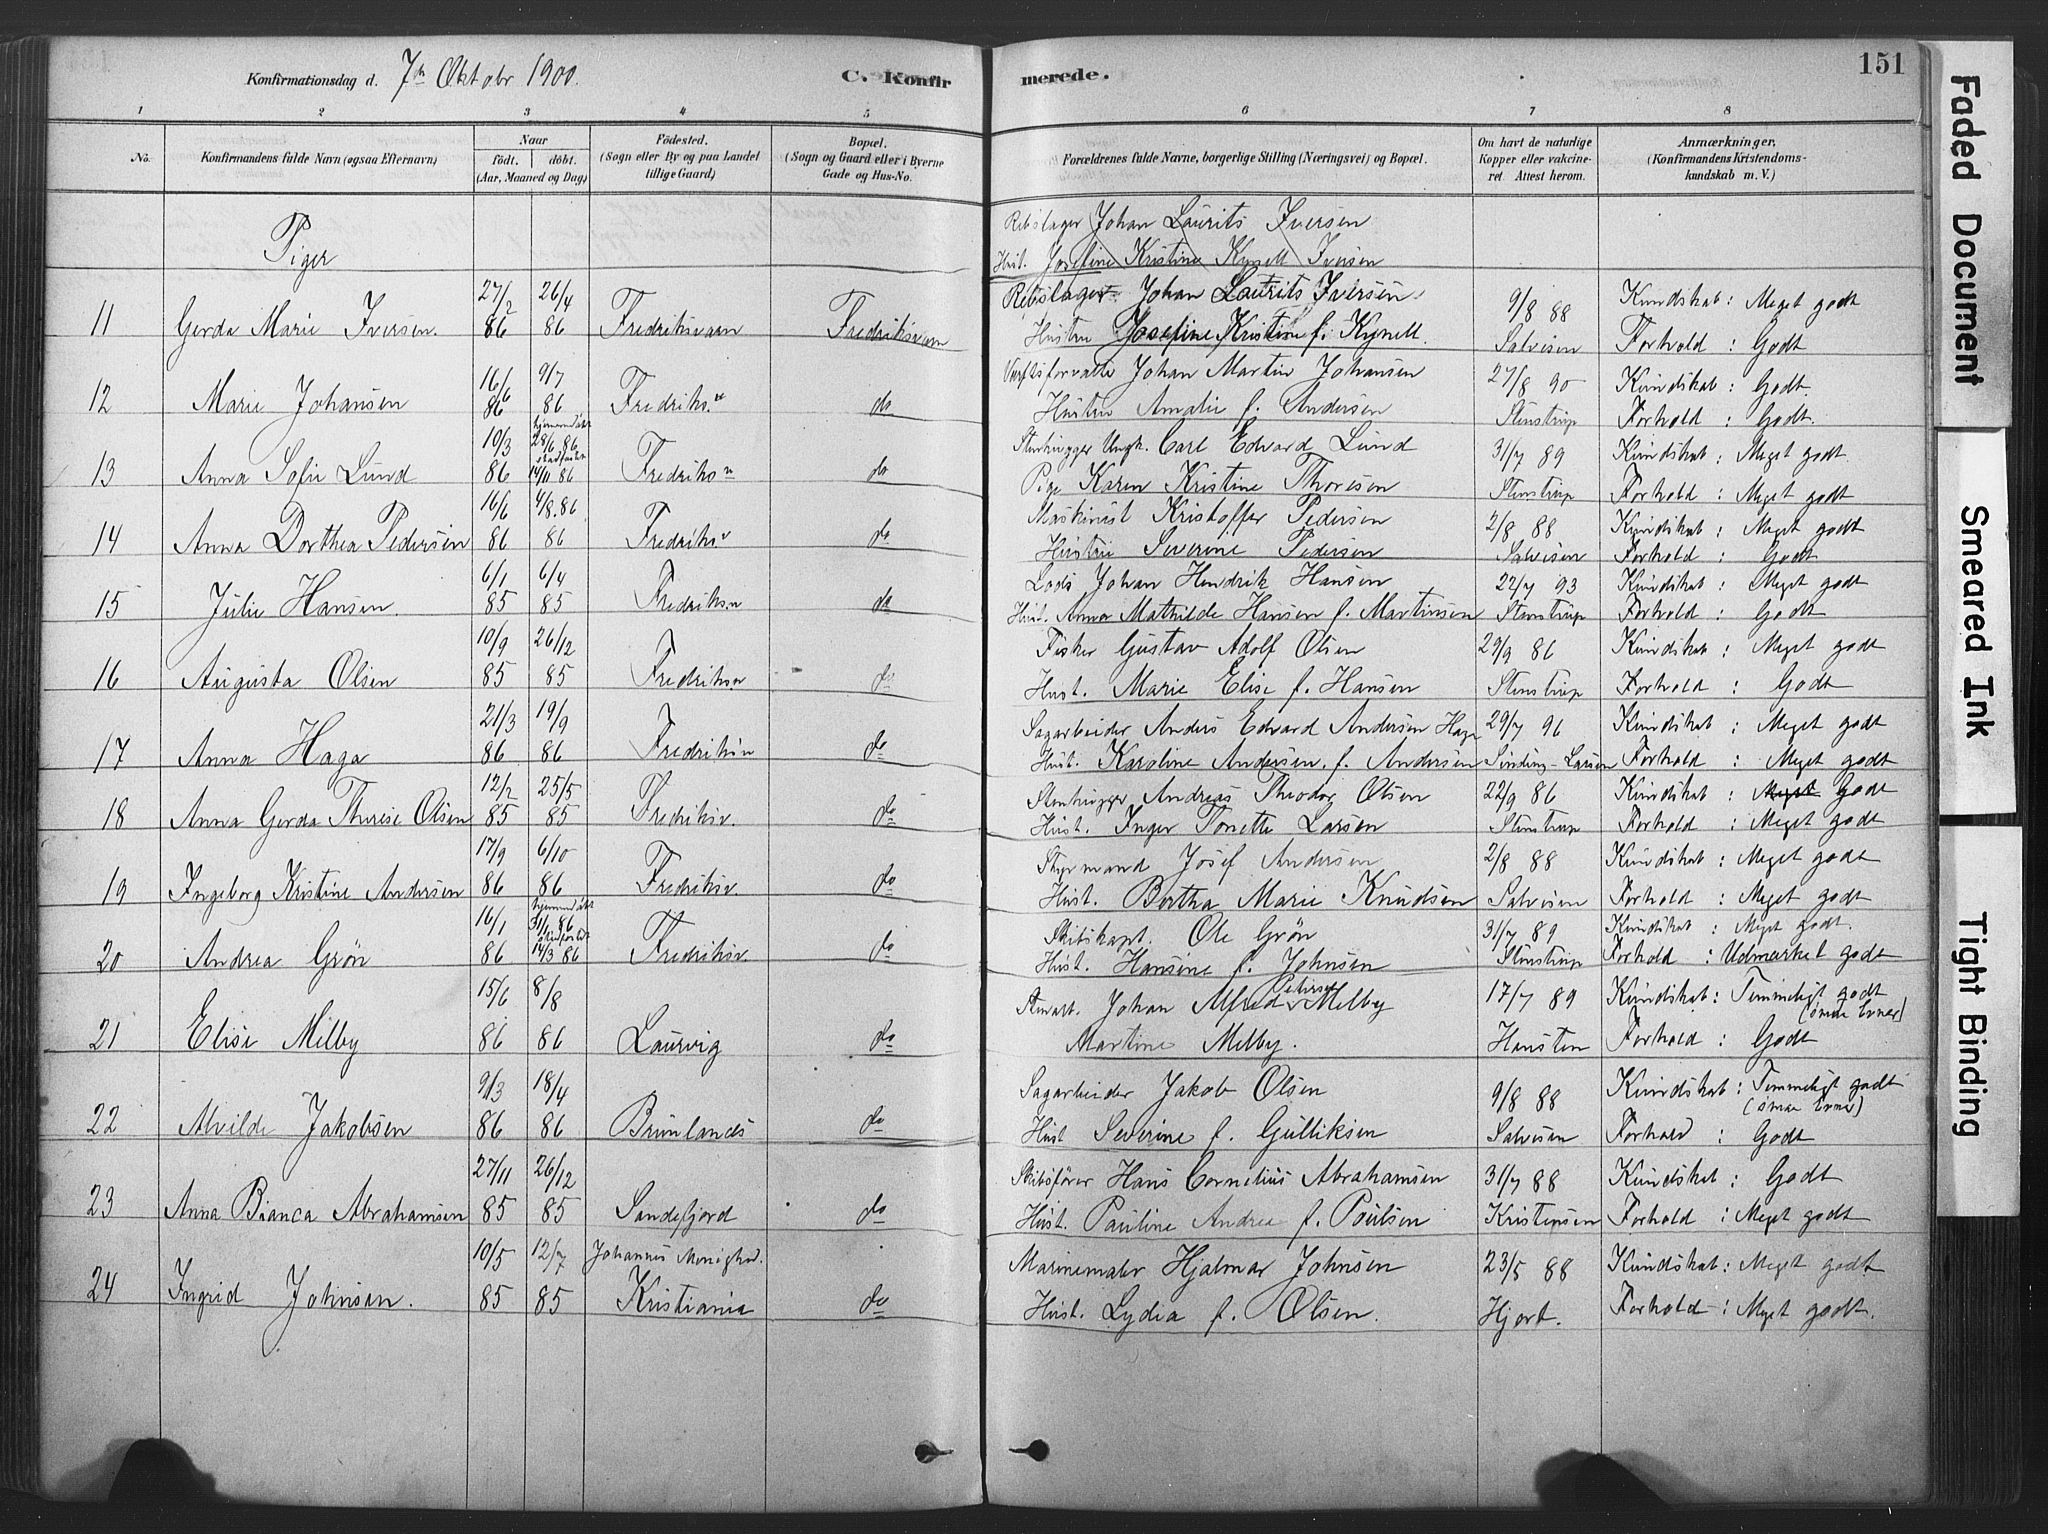 Konfirmationsdag d. 7de Oktobr 1900. C. Konfir
merede. 151
1 2 3 4 5
6 7 8
No. Konfirmandens fulde Navn (ogsaa Efternavn) Naar födt. döbt. (Aar, Maaned og Dag) Födested. (Sogn eller By og paa Landet tillige Gaard) Bopæl. (Sogn og Gaard eller i Byerne Gade og Hus-No.
Forældrenes fulde Navne, borgerlige Stilling (Næringsvei) og Bopæl. Om havt de naturlige Kopper eller vakcineret. Attest herom. Anmærkninger. (Konfirmandens Kristendomskundskab m. V.)
Piger
Rebslager Johan Laurits Iversen
Hust. Josefine Kristine Kynell Iversen
11 Gerda Marie Iversen. 27/2 86 26/4 86 Fredriksværn Fredriksværn
Rebslager Johan Laurits Iversen 9/8 88 Kundskab: Meget godt
Hustru Josefine Kristine f. Kynell. Salvesen Forhold: Godt
12 Marie Johansen 16/6 86 9/7 86 Fredriks.v do
Johan Martin Johansen 27/8 90 Kundskab: Godt.
Hustru Amalie f. Andersen Stenstrup Forhold: Godt.
13 Anna Sofie Lund 10/3 86 hjemmedøbt 28/6 86 14/11 86 Fredriksv do
Stenhugger Ungk. Carl Edvard Lund 31/7 89 Kundskab: Meget godt.
Pige Karen Kristine Thoresen Stenstrup Forhold: Meget godt
14 Anna Dorthea Pedersen 16/6 86 4/8.86 86 Fredriksv do
Maskinist Kristoffer Pedersen 2/8 88 Kundskab: Meget godt
Hustru Severine Pedersen Salvesen Forhold: Godt
15 Julie Hansen. 6/1 85 6/4 85 Fredriksv do
Lods Johan Hendrik Hansen 22/7 93 Kundskab: Meget godt
Hust. Anna Mathilde Hansen f. Martinsen Stenstrup Forhold: Godt
16 Augusta Olsen 10/9 85 26/12 85 Fredriksv do
Fisker Gustav Adolf Olsen 29/9 86 Kundskab: Meget godt
Hust. Marie Elise f. Hansen Stenstrup Forhold: Godt
17 Anna Haga 21/3 86 19/9 86 Fredriksv do
Sagarbeider Anders Edvard Andersen Haga 29/7 96 Kundskab: Meget godt
Hust. Karoline Andersen. f. Andersen Sinding-Larsen Forhold: Meget godt
18 Anna Gerda Therese Olsen 12/2 85 25/5 85 Fredriksv. do
Stenhugger Andreas Theodor Olsen 22/9 86 Kundskab: Meget Godt
Hust. Inger Tonette Larsen Stenstrup Forhold: Meget godt
19 Ingeborg Kristine Andersen 17/9 86 6/10 86 Fredriksv. do
Styrmand Josef Andersen 2/8 88 Kundskab: Meget godt
Hust. Bertha Marie Knudsen Salvesen Forhold: Meget godt
20 Andrea Grön 16/1 86 hjemmedøbt 31/1 86 14/3 86 Fredriksv. do
Skibskapt. Ole Grön 31/7 89 Kundskab: Meget godt.
Hust. Hansine f. Johnsen Stenstrup Forhold: Udmærket godt
21 Elise Melby 15/6 86 8/8 86 Laurvig do
Johan Alfred Melby 17/7 89 Kundskab: Temmeligt godt (smaa Evner)
Martine Melby. Hansten Forhold: Godt
22 Alvilde Jakobsen 9/3 86 18/4 86 Brunlanes do
Sagarbeider Jakob Olsen 9/8 88 Kundskab: Temmeligt godt (smaa Evner)
Hust Severine f. Gulliksen Salvesen Forhold: Godt
23 Anna Bianca Abrahamsen 27/11 85 26/12 85 Sandefjord do
Skibsförer Hans Cornelius Abrahamsen 31/7 88 Kundskab: Godt
Hust. Pauline Andrea f. Poulsen Kristensen Forhold: Meget godt
24 Ingrid Johnsen. 10/5 85 12/7 85 Johannes Menighed. Kristiania do
Marinemaler Hjalmar Johnsen 23/5 88 Kundskab: Meget godt
Hust. Lydia f. Olsen. Hjort. Forhold: Meget godt.
Faded Document
Smeared Ink
Tight Binding